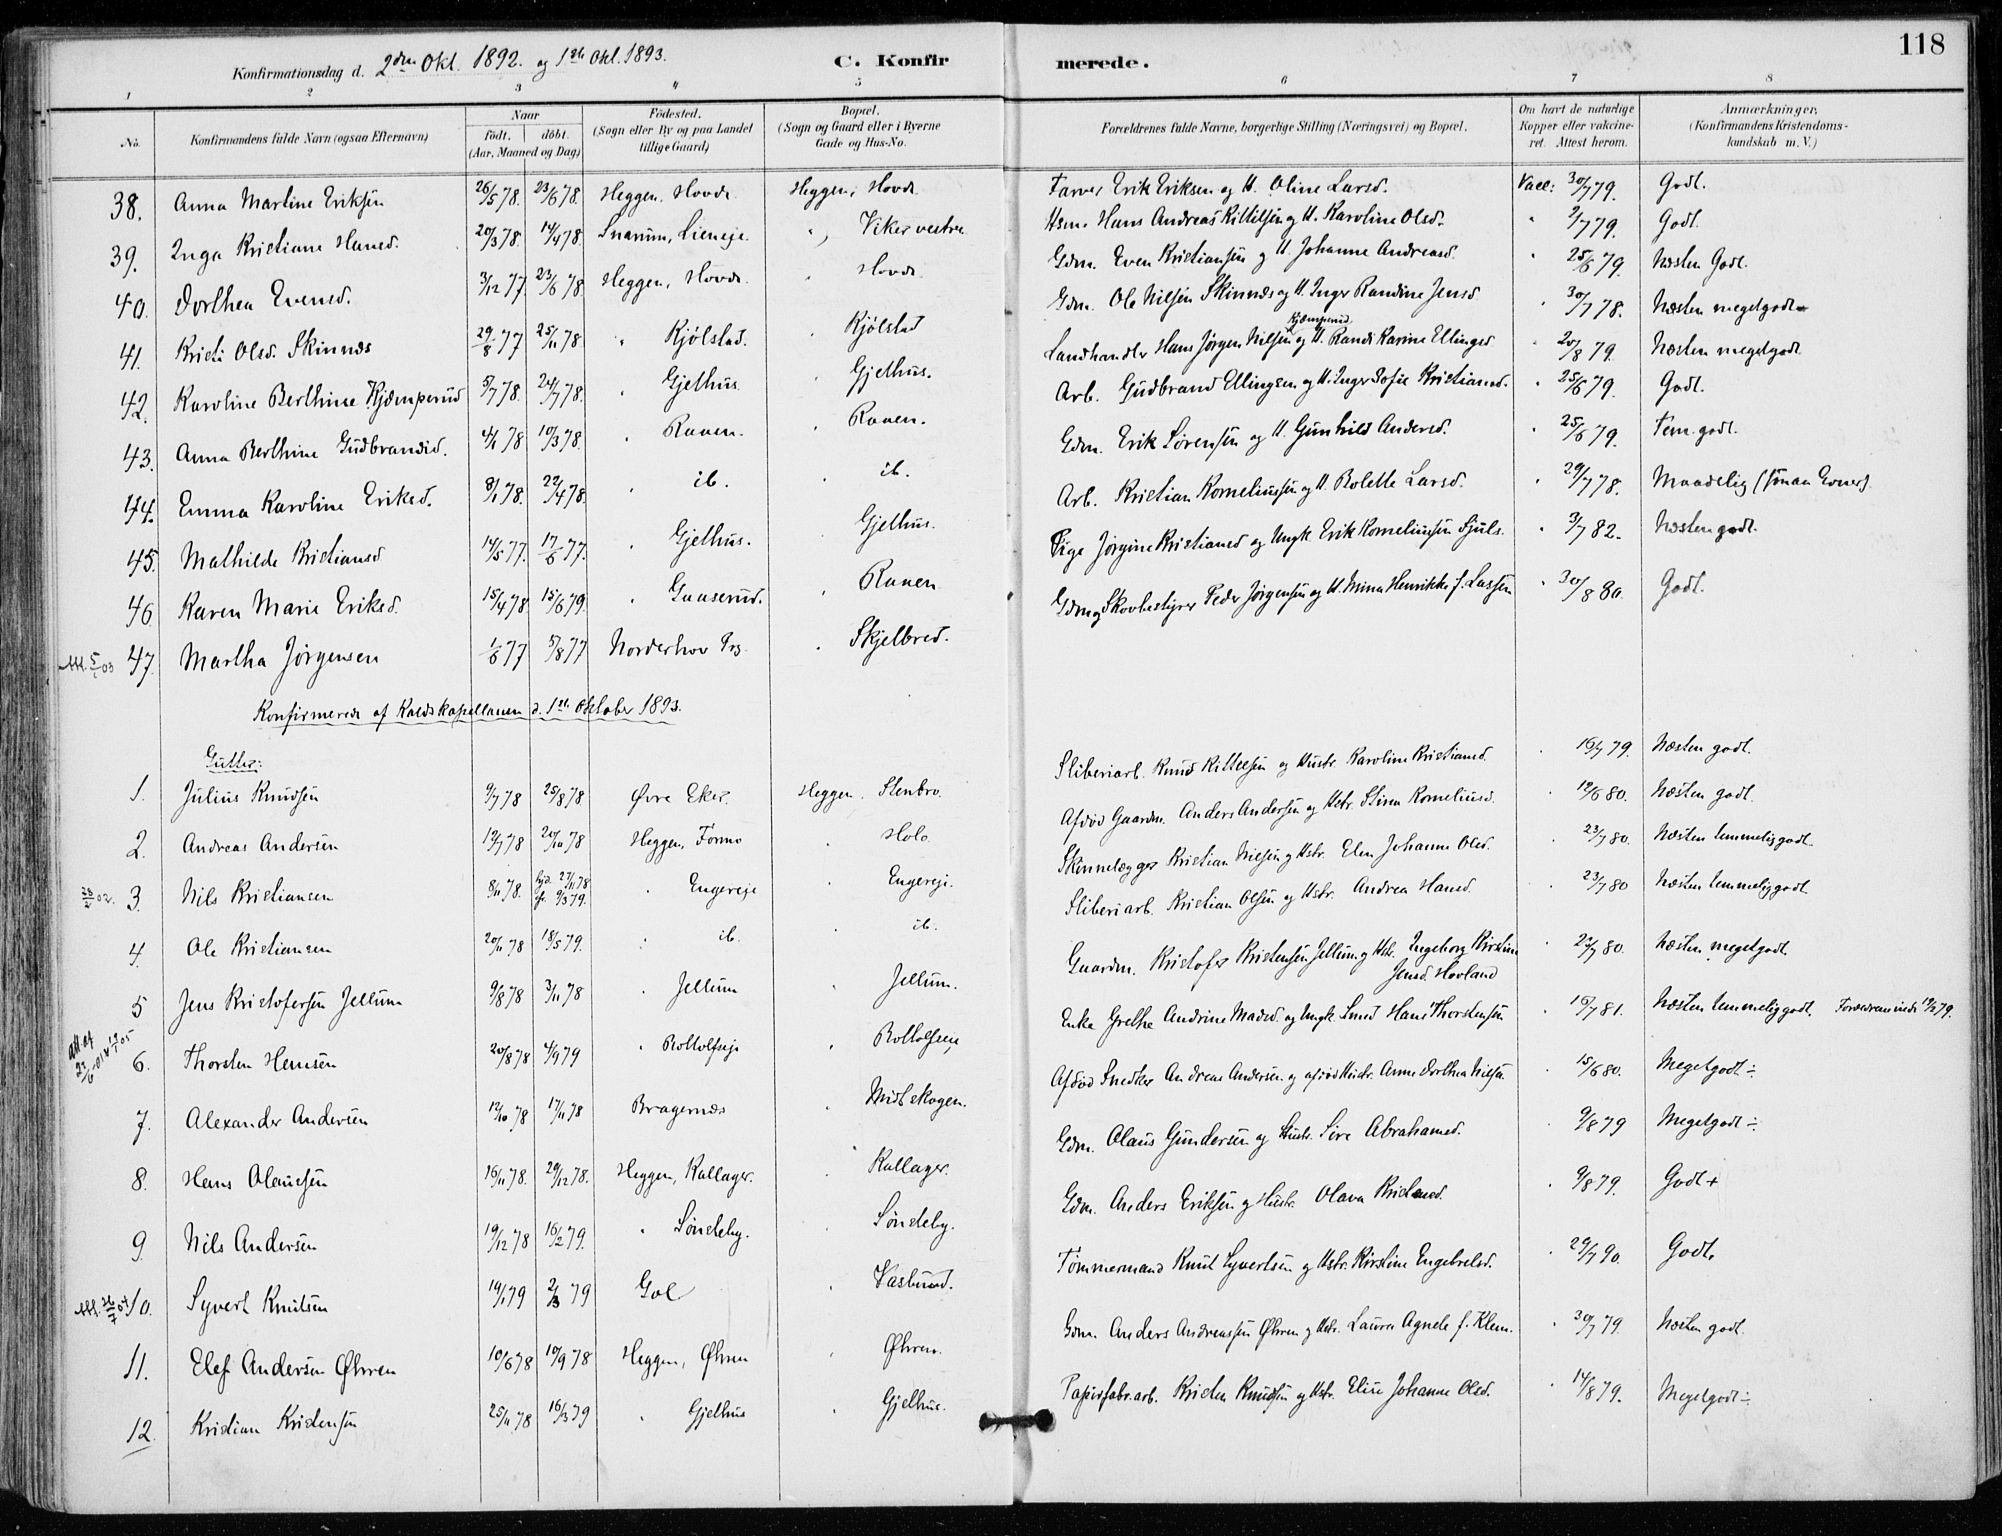 118
Konfirmationsdag d. 2den Okt. 1892. og 1ste Okt. 1893. C. Konfirmerede.
1 2 3 4 5 6 7 8
No. Konfirmandens fulde Navn (ogsaa Efternavn) Naar født. døbt. (Aar, Maaned og Dag) Fødested. (Sogn eller By og paa Landet tillige Gaard) Bopæl. (Sogn og Gaard eller i Byerne Gade og Hus-No. Forældrenes fulde Navne, borgerlige Stilling (Næringsvei) og Bopæl. Om havt de naturlige Kopper eller vakcineret. Attest herom. Anmærkninger. (Konfirmandens Kristendomskundskab m. V.)
38. Anna Martine Eriksen 26/5 78. 23/6 78. Heggen, Hovde Heggen, Hovde Farver Erik Eriksen og H. Oline Larsd. Vacc: 30/7 79. Godt.
39. Inga Kristiane Hansd. 20/3 78. 14/4 78. Snarum, Lieneje " Viker vestre Hsm. Hans Andreas Kittilsen og H. Karoline Olsd. " 2/7 79. Godt.
40. Dorthea Evensd. 3/12 77. 23/6 78. Heggen, Hovde " Hovde Gdm. Even Kristiansen og H. Johanne Andreasd. " 25/6 79. Næsten Godt.
41. Kristi Olsd. Skinnæs 29/8 77 25/11 78 " Kjølstad. " Kjølstad Gdm. Ole Nilsen Skinnæs og H. Inger Randine Jensd " 30/7 78. Næsten megetgodt
42. Karoline Berthine Kjæmperud 5/7 78. 24/7 78. " Gjethus " Gjethus. Landhandler Hans Jørgen Nilsen Kjæmperud og H. Randi Karine Ellingsd " 20/8 79. Næsten megetgodt
43. Anna Berthine Gudbrandsd. 4/1 78 10/3 78. " Ruuen. " Ruuen. Arb. Gudbrand Ellingsen og H. Inger Sofie Kristiansd. " 25/6 79. Godt.
44. Emma Karoline Eriksd. 8/1 78. 22/4 78. " ib. " ib. Gdm. Erik Sørensen og H. Gunhild Andersd. " 25/6 79. Tem. godt.
45. Mathilde Kristiansd 14/5 77. 17/6 77. " Gjethus. " Gjethus. Arb. Kristian Korneliussen og H. Bolette Larsd. " 29/7 78. Maadelig (smaa Evner).
46. Karen Marie Eriksd. 15/4 78 15/6 79. " Gaaserud. " Ruuen Pige Jørgine Kristiansd og Ungk. Erik Korneliussen Sjuls. " 3/7 82. Næsten godt.
Att. 5/1 03 47. Martha Jørgensen 1/6 77 5/8 77 Norderhov Prg. " Skjelbred. Gdm og Skovbestyrer Peder Jørgensen og H. Mina Henrikke f. Lassen " 30/8 80. Godt.
Konfirmerede af Kaldskapellanen d. 1ste Oktober 1893.
Gutter:
1. Julius Knudsen 9/7 78 25/8 78 Øvre Eker. Heggen, Stenbro. Sliberiarb. Knud Kittelsen og Hustr. Karoline Kristiansd. " 16/7 79. Næsten godt.
2. Andreas Andersen 12/7 78 20/10 78 Heggen, Formo " Holo Afdød Gaardm. Anders Andersen og Hstr. Stina Korneliusd. " 12/6 80. Næsten godt.
28/2 02. 3. Nils Kristiansen 8/11 78. hjd. 27/11 78 fr. 9/3 79. " Engereje " Engereje. Skinnelægger Kristian Nilsen og Hstr. Elen Johanne Olsd. " 23/7 80. Næsten temmelig godt.
4. Ole Kristiansen 20/11 78 18/5 79. " ib. " ib. Sliberiarb. Kristian Olsen og Hstr. Andrea Hansd. " 23/7 80 Næsten temmelig godt.
5 Jens Kristofersen Jellum 9/8 78 3/11 78 " Jellum " Jellum. Gaardm. Kristofer Kristensen Jellum og Hstr. Ingeborg Kirstine Jensd. Hovland " 22/7 80. Næsten megetgodt.
6. Thorsten Hansen 20/8 78 4/9 79 " Enke Grethe Andrine Madsd. og Ungk. Smed Hans Thorstensen " 16/7 81. Næsten temmelig godt.
7. Alexander Andersen 12/10 78 17/11 78 Bragernæs " Midtskogen. Afdød Snedker Andreas Andersen og afdød Hustr. Anne Dorthea Nilsen. " 15/6 80. Megetgodt ÷
8. Hans Olaussen 16/11 78. 29/12 78. Heggen, Kallager. " Kallager. Gdm. Olaus Gundersen og Hustr. Siri Abrahamsd. " 9/8 79 Megetgodt ÷
9. Nils Andersen 19/12 78 16/2 79. " Søndeby. " Søndeby. Gdm. Anders Eriksen og Hustr. Olava " 9/8 79. Godt +
Att. 10. Syvert Knutsen 19/1 79 2/3 79 Gol " Vasbund. Tømmermand Knut Syvertsen og Hstr. Kirstine Engebretsd. " 29/7 90. Godt.
11. Elef Andersen Øhren 10/6 78 10/9 78 Heggen, Øhren " Øhren. Gdm. Anders Andreassen Øhren og Hstr. Laura Agnete f. Klem. " 30/7 79. Næsten godt.
12. Kristian Kristensen 25/11 78 16/3 79 " Gjethus " Gjethus. Papirfabr.arb. Kristen Knudsen og Hstr. Elise Johanne Olsd. " 14/8 79. Megetgodt ÷